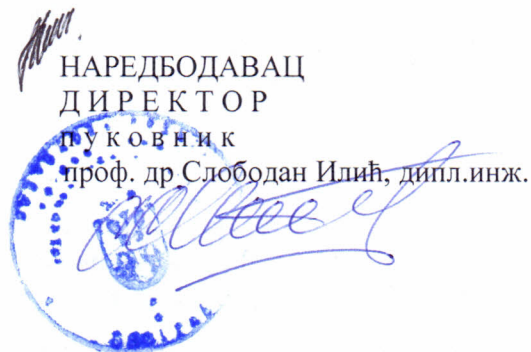 НАРЕДБОДАВАЦ
Д И Р Е К Т О Р
п у к о в н и к
проф. др Слободан Илић, дипл.инж.